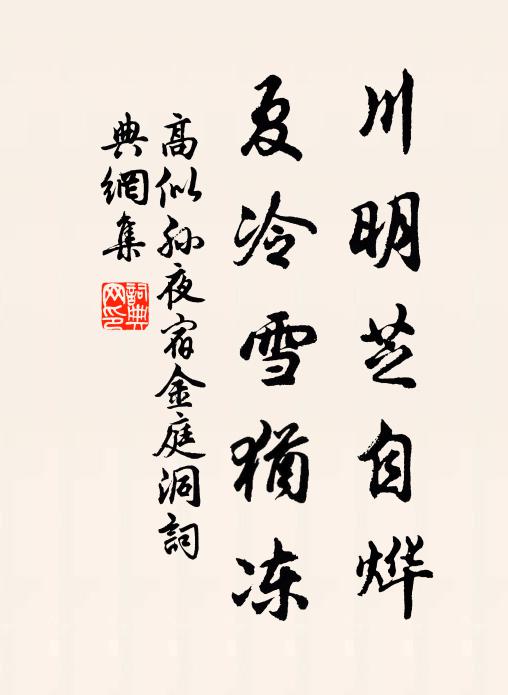 川明芝自烨
夏冷雪猶冻
高似孙夜宿金庭洞詞
典網集
詞典
网印